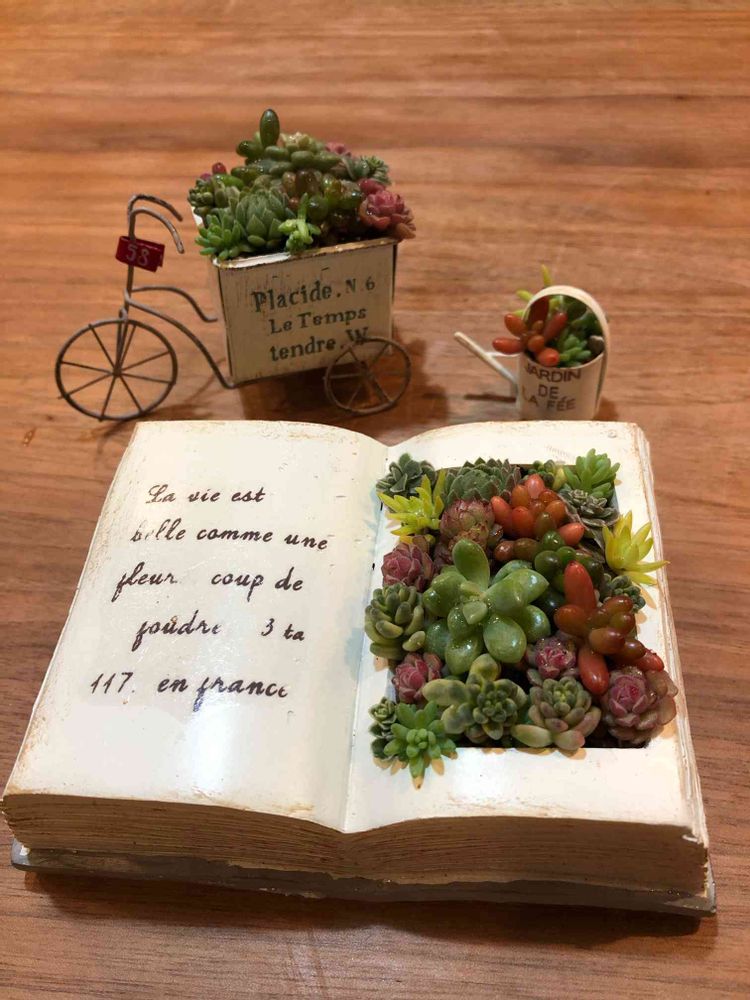 58
Placide. N 6
Le Temps
tendre. W
JARDIN
DE
LA FÉE
La vie est
belle comme une
fleur. coup de
foudre 3 ta
117. en france